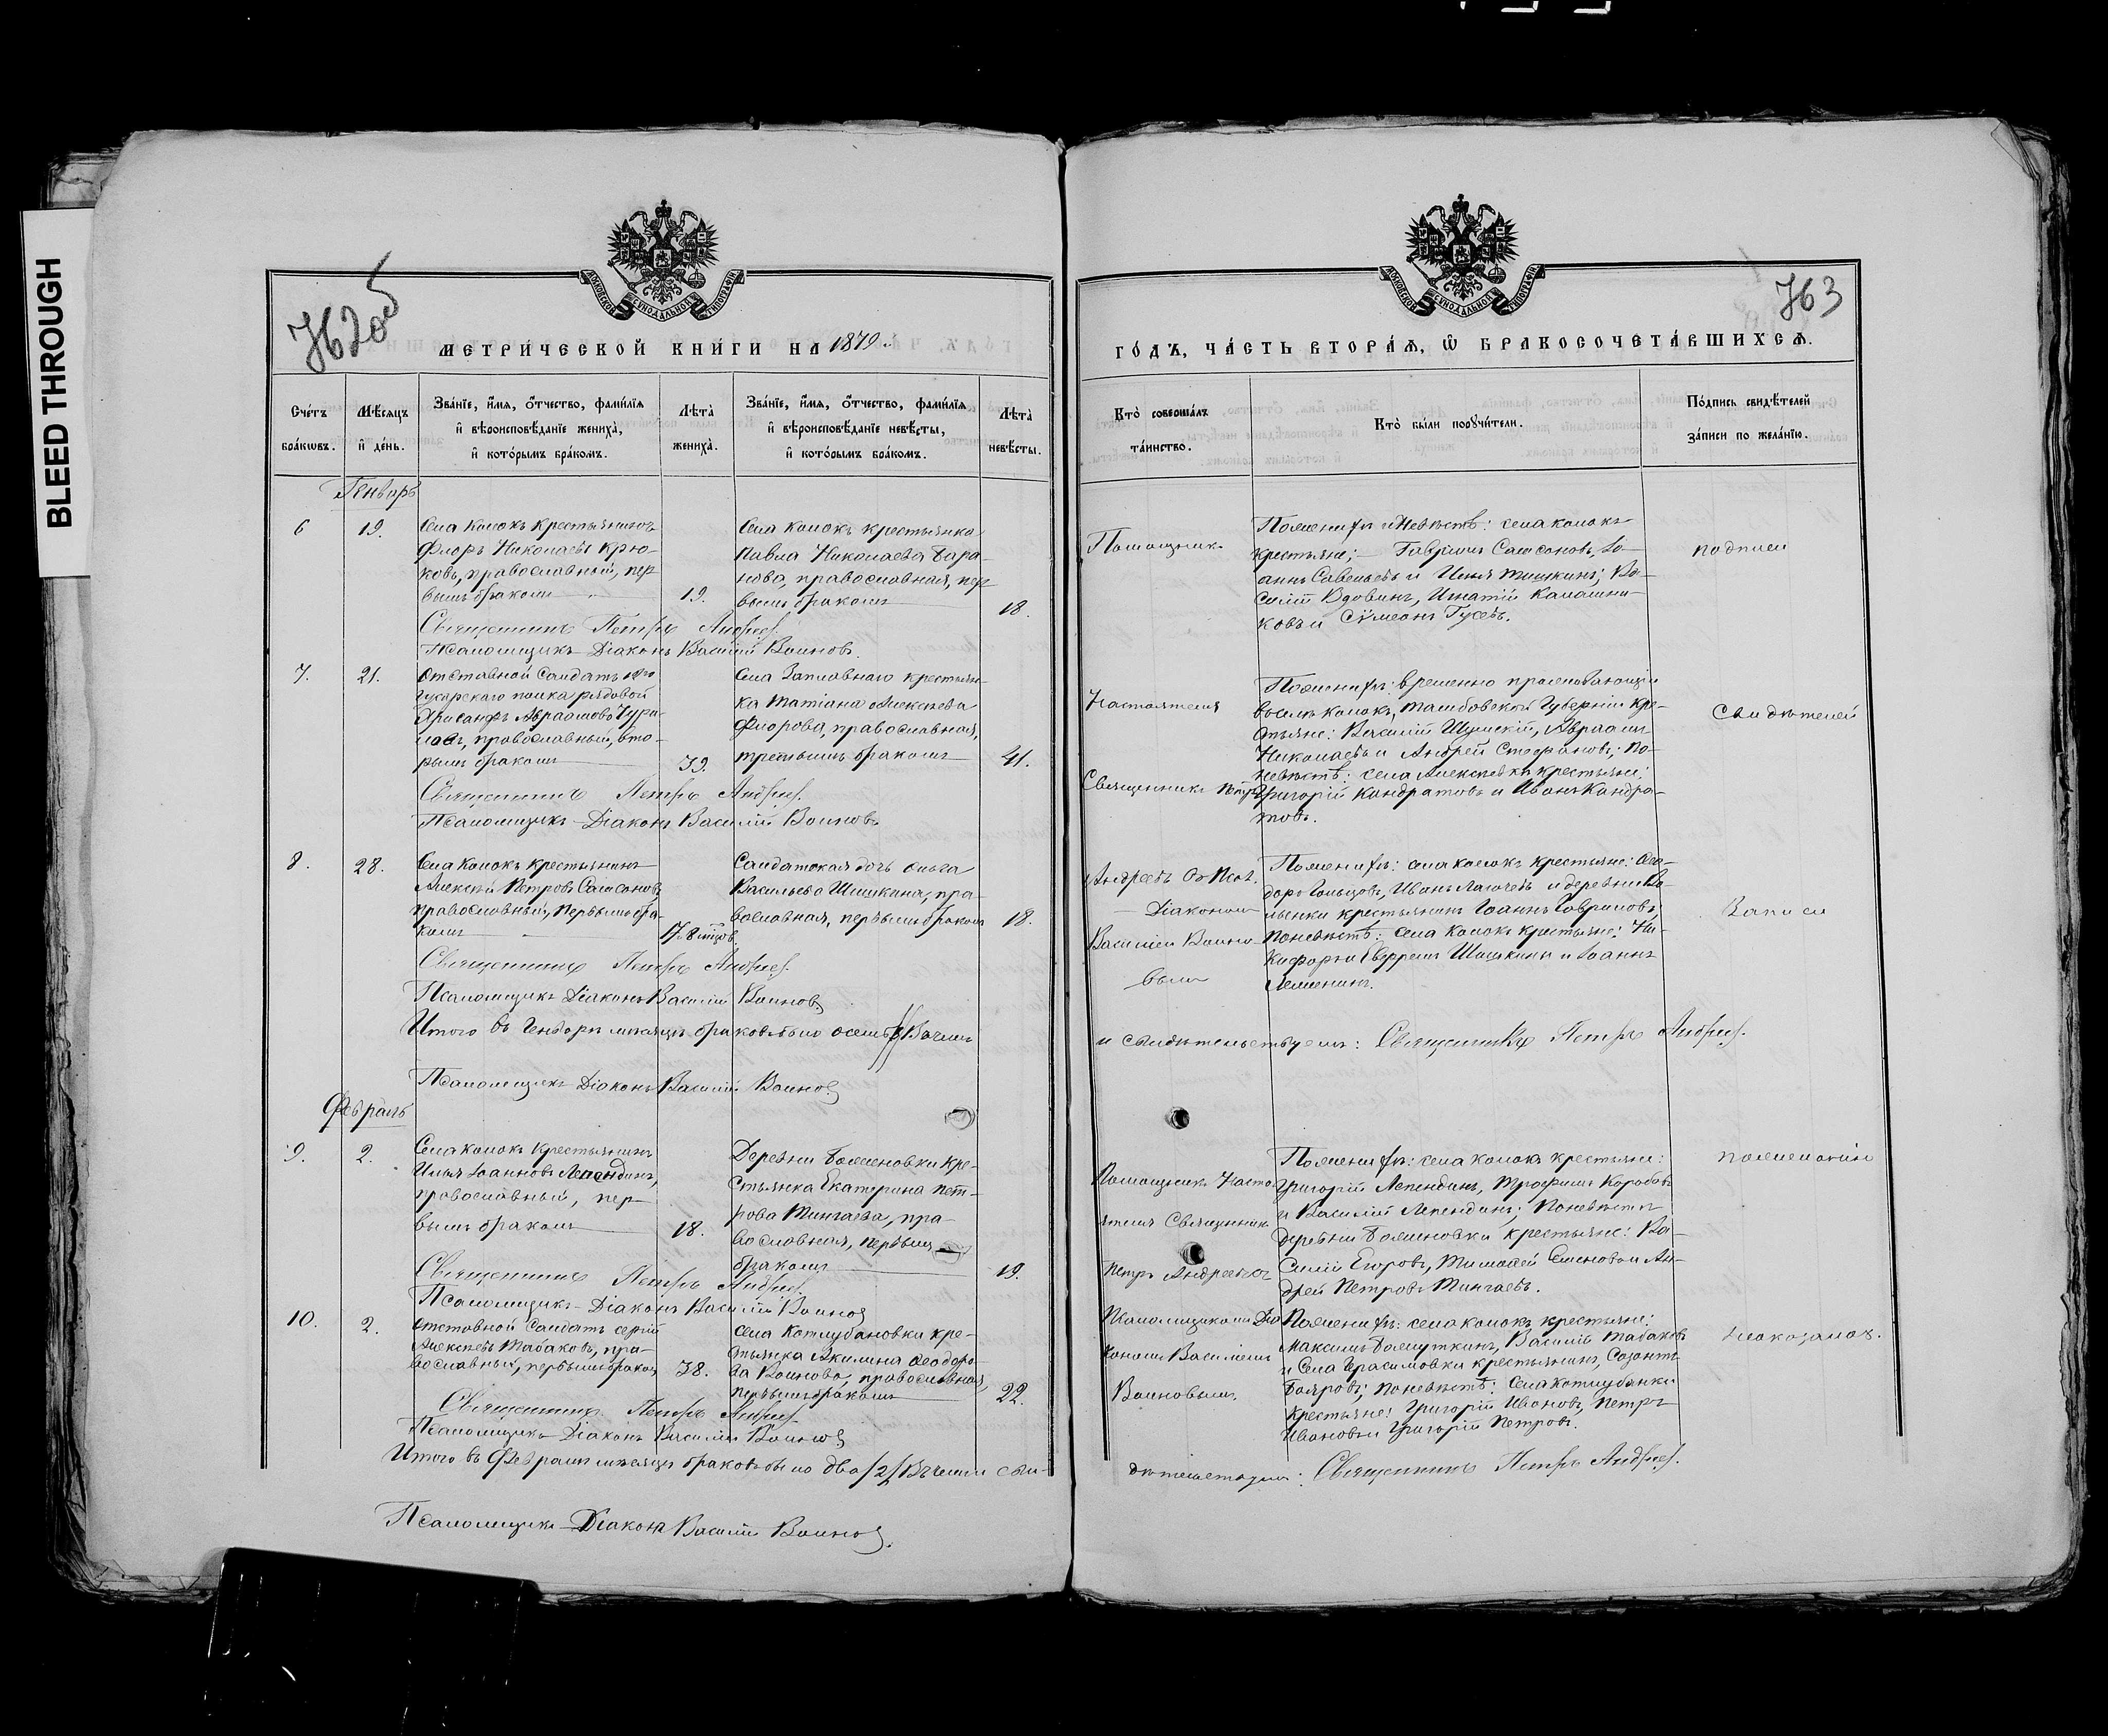 BLEED THROUGH
762об
МЕТРИ́ЧЕСКОЙ КНИ́ГИ НА 1879.
Сче́тъ бра́кѡвъ.
Мѣ́сѧцъ и҆ де́нь.
Зва́нїе, и҆́мѧ, ѻ҆́тчество, фамѝлїѧ
и҆ вѣроисповѣ́данїе жениха̀,
и҆ кото́рымъ бра́комъ.
Лѣта̀ жениха̀.
Зва́нїе, и҆́мѧ, ѻ҆́тчество, фамѝлїѧ
и҆ вѣроисповѣ́данїе невѣ́сты,
и҆ кото́рымъ бра́комъ.
Лѣта̀ невѣ́сты.
Генварь
6
19.
Села Колокъ крестьянинъ
Флоръ Николаевъ Крю-
ковъ, православный, пер
вымъ бракомъ
19.
Села Колокъ крестьянка
Павла Николаева Бара-
нова, православная, пер
вымъ бракомъ
18.
Священникъ Петръ Андреев
Псаломщикъ Діаконъ Василій Воиновъ.
7.
21.
Отставной Солдатъ
полка рядовой
Хрисанфъ Авраамовъ
православный, вто-
рымъ бракомъ
39.
Села Заплавнаго крестьян-
ка Татіана Алексѣева
Флорова, православная,
третьимъ бракомъ
41.
Священникъ Петръ Андреев.
Псаломщикъ-Діаконъ Василій Воиновъ
8.
28.
Села Колокъ крестьянинъ
Алексѣй Петровъ Самсоновъ,
православный, первымъ бра-
комъ
17. 8 мцов.
Солдатская дочь Ольга
Васильева Шишкина, пра-
вославная, первымъ бракомъ
18.
Священникъ Петръ Андреев.
Псаломщикъ Діаконъ Василій Воиновъ
Итого въ Генварѣ мѣсяцѣ браковъ было осемь /8/ Въ чемъ
Псаломщикъ Діаконъ Василій Воиновъ
Февраль
9.
2.
Села Колокъ крестьянинъ
Илья Іоанновъ Лепендинъ,
православный, пер-
вымъ бракомъ
18.
Деревни Баженовки кре-
стьянка Екатерина Пет-
рова Мингаева, пра-
вославная, первымъ
бракомъ
19.
Священникъ Петръ Андреев.
Псаломщикъ-Діаконъ Василій Воиновъ
10.
2.
Отставной Солдатъ Сергій
Алексѣевъ Табаковъ, пра-
вославный, первымъ бракомъ
38.
Села Котлубановки кре-
стьянка Акилина Ѳеодоро-
ва Воинова, православная,
первымъ бракомъ
22.
Священникъ Петръ Андреев.
Псаломщикъ Діаконъ Василій Воиновъ
Итого въ Февралѣ мѣсяцѣ браковъ было два /2/ Въ чемъ сви-
Псаломщикъ-Діаконъ Василій Воиновъ.
763
ГО́ДЪ, ЧА́СТЬ ВТОРА́Ѧ, Ѡ҆ БРАКОСОЧЕТА́ВШИХСѦ.
Кто̀ соверша́лъ та́инство.
Кто̀ бы́ли порꙋчи́тели.
По́дпись свидѣ́телей
за́писи по жела́нїю.
Помощникъ
Настоятеля
Священникъ Петръ
Андреевъ съ Псал.
Діакономъ
Василіем Воино-
вымъ
По женихѣ и Невѣстѣ: села Колокъ
крестьяне: Гавріилъ Самсоновъ, Іо-
аннъ Савельевъ и Илья Тишкинъ; Ва-
силій Вдовинъ, Игнатій Калашни-
ковъ и Сѵмеонъ Гусевъ.
По женихѣ: временно проживающіи
въ селѣ Колокъ, Тамбовской Губерніи кре-
стьяне: Василій Шумскій, Авраамъ
Николаевъ и Андрей Стефановъ; по
невѣстѣ: села Алексѣевки крестьяне:
Григорій Кондратовъ и Иванъ Кондра-
товъ.
По женихѣ: села Колокъ крестьяне: Ѳео-
доръ Гольцовъ, Иванъ и деревни
крестьянинъ Іоаннъ Гавриловъ;
По невѣстѣ: села Колокъ крестьяне: Ни-
кифоръ и Ефремъ Шишкины и Іоаннъ
подписи
Свидѣтелей
Записи
и свидѣтельствуемъ: Священникъ Петръ Андреев.
Помощникъ Насто-
ятеля Священникъ
Петръ Андреевъ съ
Псаломщикомъ Діа-
кономъ Василіемъ
Воиновымъ.
По женихѣ: села Колокъ крестьяне:
Григорій Лепендинъ, Трофимъ Коробовъ
и Василій Лепендинъ; По невѣстѣ
деревни Баженовки крестьяне: Ва-
силій Егоровъ, Тимоѳей Семеновъ и Ан-
дрей Петровъ Мингаевъ.
По женихѣ: села Колокъ крестьяне:
Максимъ Василій Табаковъ
и Села Герасимовки крестьянинъ, Созонтъ
Бояровъ; по невѣстѣ: Села Котлубанки
крестьяне: Григорій Ивановъ, Петръ
Ивановъ и Григорій Петровъ.
по желанію
неоказалось.
дѣтельствуемъ: Священникъ Петръ Андреев.